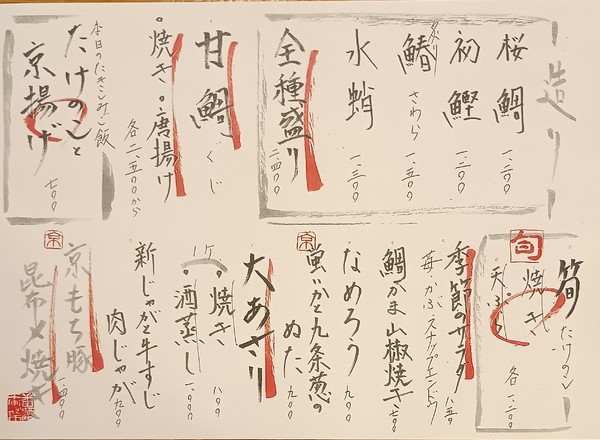 造り
桜鯛 一、二〇〇
初鰹 一、二〇〇
鰆 さわら 一、五〇〇
水蛸 一、三〇〇
全種盛り 二、四〇〇
甘鯛 ぐじ
・焼き ・唐揚げ
各二、五〇〇から
本日のたきこみご飯
たけのこと
京揚げ 七〇〇
旬
筍 たけのこ
焼き
天ぷら
各一、二〇〇
季節のサラダ 八五〇
苺 かぶ スナップエンドウ
鯛かま山椒焼き 七〇〇
なめろう 九〇〇
京
蛍いかと九条葱の
ぬた 九〇〇
大あさり
1ケ
・焼き 八〇〇
・酒蒸し 一、〇〇〇
新じゃがと牛すじ
肉じゃが 九〇〇
京
京もち豚
昆布〆焼き 一、四〇〇